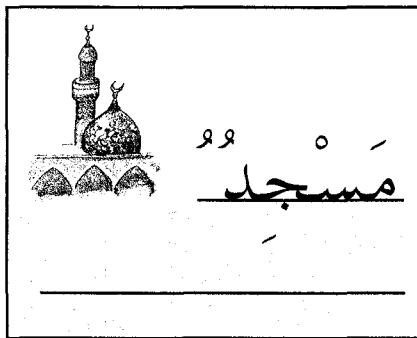 مَسْجِدٌ